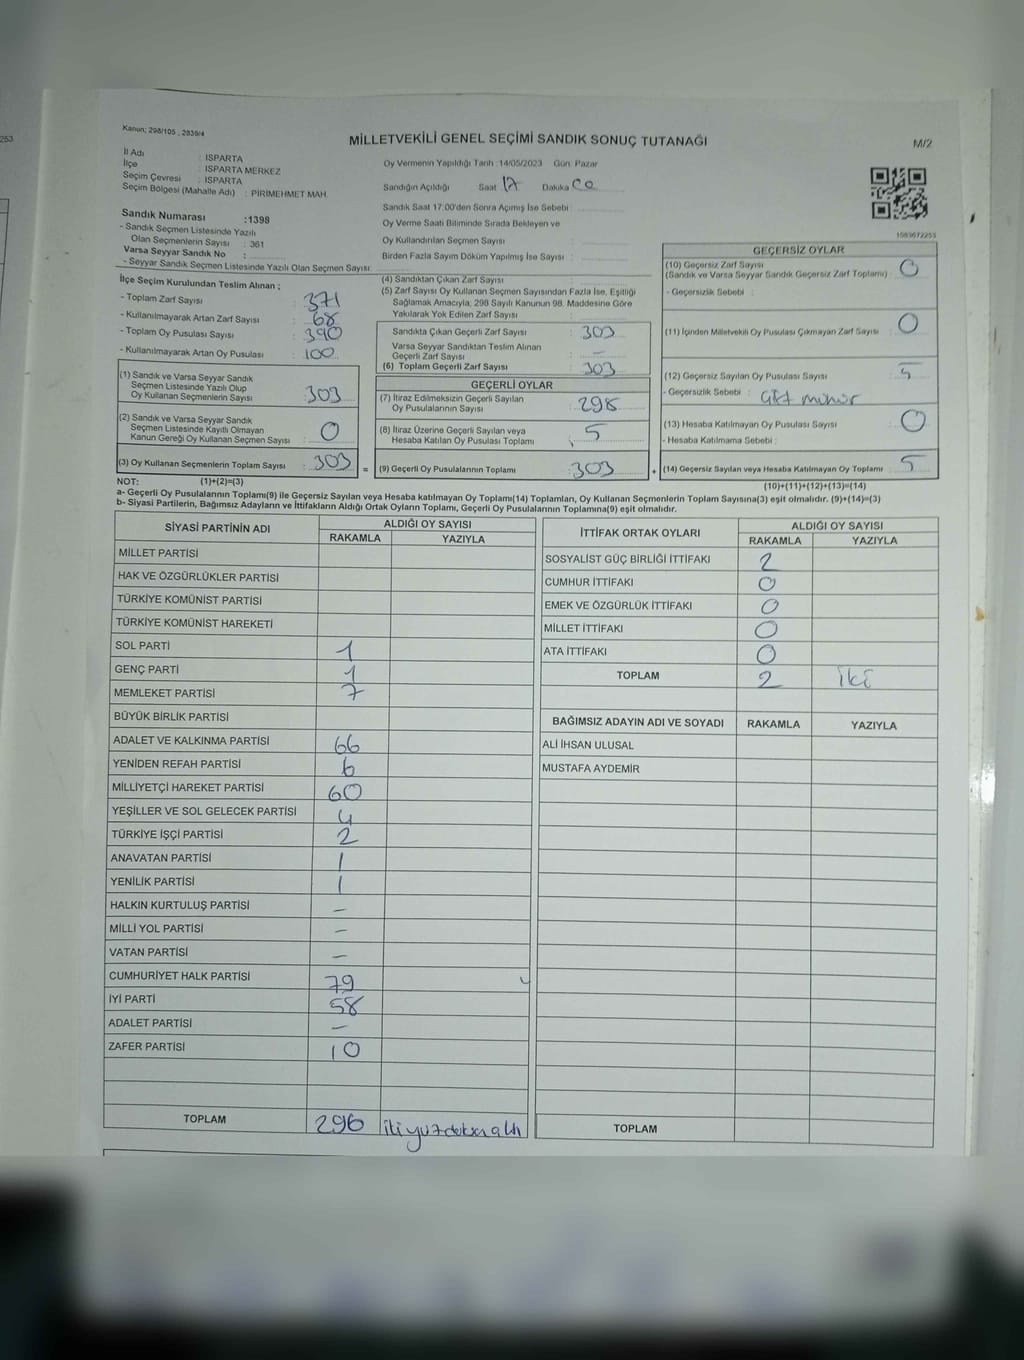 253
Kanun: 298/105 , 2839/4
MİLLETVEKİLİ GENEL SEÇİMİ SANDIK SONUÇ TUTANAĞI
M/2
İl Adı : ISPARTA
İlçe : ISPARTA MERKEZ
Seçim Çevresi : ISPARTA
Seçim Bölgesi (Mahalle Adı) : PİRİMEHMET MAH.
Oy Vermenin Yapıldığı Tarih : 14/05/2023 Gün: Pazar
Sandığın Açıldığı Saat 17 Dakika 00
Sandık Saat 17:00'den Sonra Açımış İse Sebebi :
Oy Verme Saati Bitiminde Sırada Bekleyen ve
Oy Kullandırılan Seçmen Sayısı
Birden Fazla Sayım Döküm Yapılmış İse Sayısı :
Sandık Numarası :1398
- Sandık Seçmen Listesinde Yazılı
Olan Seçmenlerin Sayısı : 361
Varsa Seyyar Sandık No :
- Seyyar Sandık Seçmen Listesinde Yazılı Olan Seçmen Sayısı:
İlçe Seçim Kurulundan Teslim Alınan ;
- Toplam Zarf Sayısı : 371
- Kullanılmayarak Artan Zarf Sayısı : 68
- Toplam Oy Pusulası Sayısı : 390
- Kullanılmayarak Artan Oy Pusulası : 100
(1) Sandık ve Varsa Seyyar Sandık
Seçmen Listesinde Yazılı Olup
Oy Kullanan Seçmenlerin Sayısı : 303
(2) Sandık ve Varsa Seyyar Sandık
Seçmen Listesinde Kayıtlı Olmayan
Kanun Gereği Oy Kullanan Seçmen Sayısı : 0
(3) Oy Kullanan Seçmenlerin Toplam Sayısı : 303 =
(4) Sandıktan Çıkan Zarf Sayısı :
(5) Zarf Sayısı Oy Kullanan Seçmen Sayısından Fazla İse, Eşitliği
Sağlamak Amacıyla; 298 Sayılı Kanunun 98. Maddesine Göre
Yakılarak Yok Edilen Zarf Sayısı :
Sandıkta Çıkan Geçerli Zarf Sayısı : 303
Varsa Seyyar Sandıktan Teslim Alınan
Geçerli Zarf Sayısı : -
(6) Toplam Geçerli Zarf Sayısı : 303
GEÇERLİ OYLAR
(7) İtiraz Edilmeksizin Geçerli Sayılan
Oy Pusulalarının Sayısı : 298
(8) İtiraz Üzerine Geçerli Sayılan veya
Hesaba Katılan Oy Pusulası Toplamı : 5
(9) Geçerli Oy Pusulalarının Toplamı : 303 +
1583672253
GEÇERSİZ OYLAR
(10) Geçersiz Zarf Sayısı : 0
(Sandık ve Varsa Seyyar Sandık Geçersiz Zarf Toplamı)
- Geçersizlik Sebebi :
(11) İçinden Milletvekili Oy Pusulası Çıkmayan Zarf Sayısı : 0
(12) Geçersiz Sayılan Oy Pusulası Sayısı : 5
- Geçersizlik Sebebi : çift mühür
(13) Hesaba Katılmayan Oy Pusulası Sayısı : 0
- Hesaba Katılmama Sebebi :
(14) Geçersiz Sayılan veya Hesaba Katılmayan Oy Toplamı : 5
NOT: (1)+(2)=(3)
(10)+(11)+(12)+(13)=(14)
a- Geçerli Oy Pusulalarının Toplamı(9) ile Geçersiz Sayılan veya Hesaba katılmayan Oy Toplamı(14) Toplamları, Oy Kullanan Seçmenlerin Toplam Sayısına(3) eşit olmalıdır. (9)+(14)=(3)
b- Siyasi Partilerin, Bağımsız Adayların ve İttifakların Aldığı Ortak Oyların Toplamı, Geçerli Oy Pusulalarının Toplamına(9) eşit olmalıdır.
SİYASİ PARTİNİN ADI ALDIĞI OY SAYISI
RAKAMLA YAZIYLA
MİLLET PARTİSİ
HAK VE ÖZGÜRLÜKLER PARTİSİ
TÜRKİYE KOMÜNİST PARTİSİ
TÜRKİYE KOMÜNİST HAREKETİ
SOL PARTİ 1
GENÇ PARTİ 1
MEMLEKET PARTİSİ 7
BÜYÜK BİRLİK PARTİSİ
ADALET VE KALKINMA PARTİSİ 66
YENİDEN REFAH PARTİSİ 6
MİLLİYETÇİ HAREKET PARTİSİ 60
YEŞİLLER VE SOL GELECEK PARTİSİ 4
TÜRKİYE İŞÇİ PARTİSİ 2
ANAVATAN PARTİSİ 1
YENİLİK PARTİSİ 1
HALKIN KURTULUŞ PARTİSİ -
MİLLİ YOL PARTİSİ -
VATAN PARTİSİ -
CUMHURİYET HALK PARTİSİ 79
İYİ PARTİ 58
ADALET PARTİSİ -
ZAFER PARTİSİ 10
TOPLAM 296 ikiyüzdoksanaltı
İTTİFAK ORTAK OYLARI ALDIĞI OY SAYISI
RAKAMLA YAZIYLA
SOSYALİST GÜÇ BİRLİĞİ İTTİFAKI 2
CUMHUR İTTİFAKI 0
EMEK VE ÖZGÜRLÜK İTTİFAKI 0
MİLLET İTTİFAKI 0
ATA İTTİFAKI 0
TOPLAM 2 iki
BAĞIMSIZ ADAYIN ADI VE SOYADI RAKAMLA YAZIYLA
ALİ İHSAN ULUSAL
MUSTAFA AYDEMİR
TOPLAM